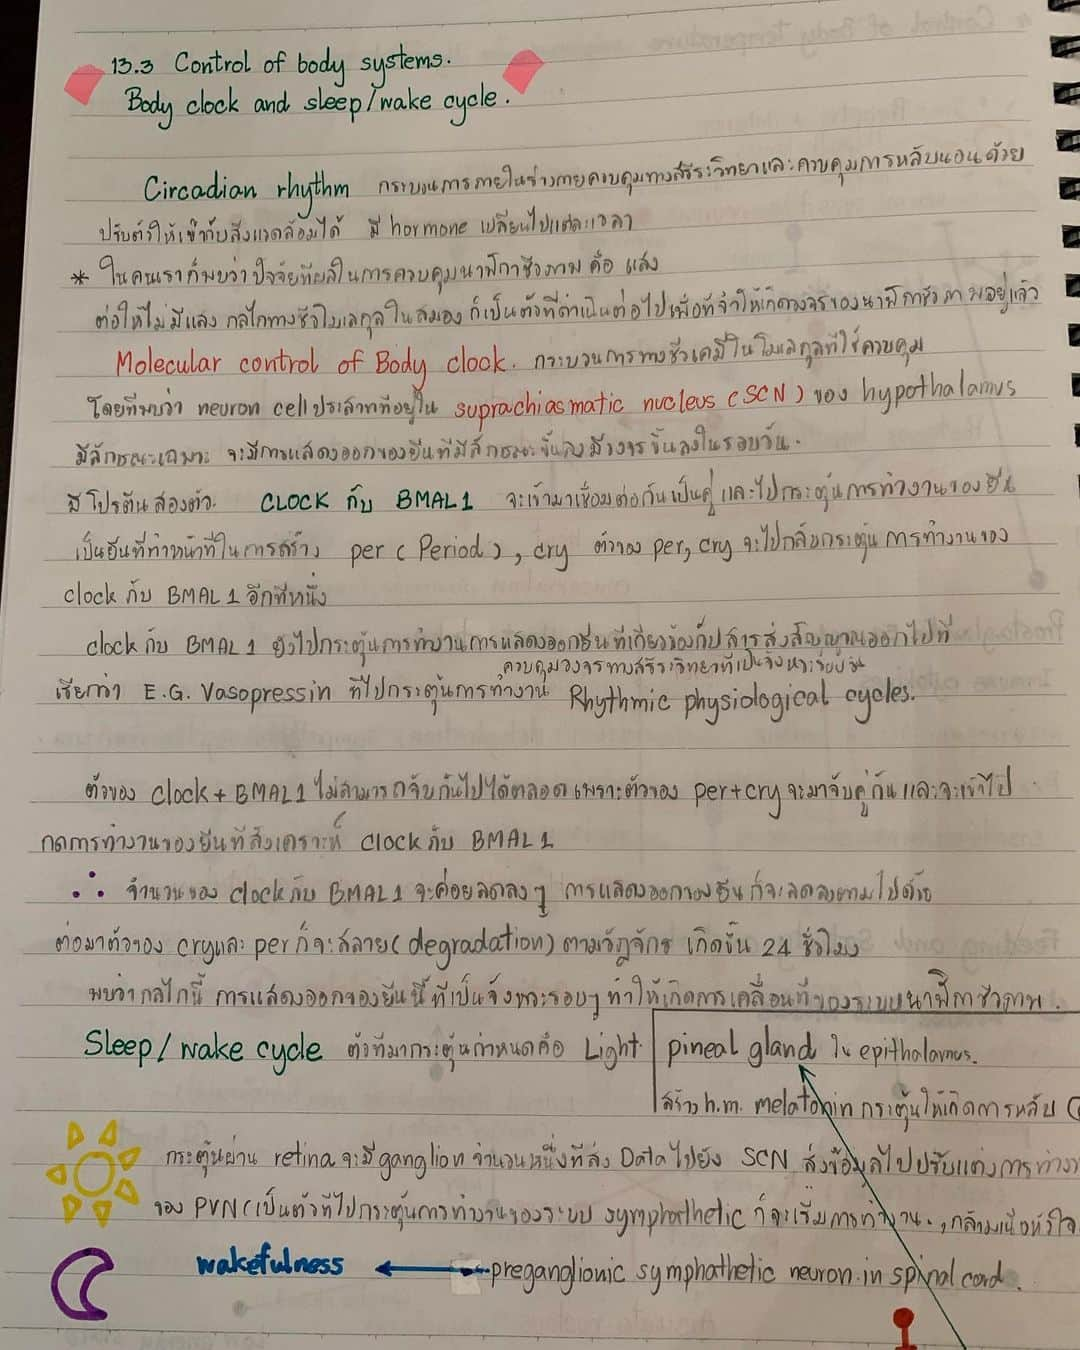 13.3 Control of body systems.
Body clock and sleep/wake cycle.
Circadian rhythm กระบวนการภายในร่างกายควบคุมทางสรีระวิทยาและควบคุมการหลับนอนด้วย
ปรับตัวให้เข้ากับสิ่งแวดล้อมได้ มี hormone เปลี่ยนไปแต่ละเวลา
* ในคนเราก็พบว่าปัจจัยที่ผลในการควบคุมนาฬิกาชีวภาพ คือ แสง
ต่อให้ไม่มีแสง กลไกทางชีวโมเลกุลในสมอง ก็เป็นตัวที่ดำเนินต่อไปเพื่อที่จำให้เกิดวงจรของนาฬิกาชีวภาพอยู่แล้ว
Molecular control of Body clock. กระบวนการทางชีวเคมีในโมเลกุลที่ใช้ควบคุม
โดยที่พบว่า neuron cell ประสาทที่อยู่ใน suprachiasmatic nucleus (SCN) ของ hypothalamus
มีลักษณะเฉพาะ จะมีการแสดงออกของยีนที่มีลักษณะขึ้นลงมีวงจรขึ้นลงในรอบวัน.
มีโปรตีนสองตัว. CLOCK กับ BMAL1 จะเข้ามาเชื่อมต่อกันเป็นคู่ และไปกระตุ้นการทำงานของยีน
เป็นยีนที่ทำหน้าที่ในการสร้าง per (Period), cry ตัวของ per, cry จะไปกลับกระตุ้นการทำงานของ
clock กับ BMAL1 อีกทีหนึ่ง
clock กับ BMAL1 ยังไปกระตุ้นการทำงานการแสดงออกยีนที่เกี่ยวข้องกับสารส่งสัญญาณออกไปที่
ควบคุมวงจรทางสรีระวิทยาที่เป็นจังหวะ
เรียกว่า E.G. Vasopressin ที่ไปกระตุ้นการทำงาน Rhythmic physiological cycles.
ตัวของ clock + BMAL1 ไม่สามารถจับกันไปได้ตลอด เพราะตัวของ per + cry จะมาจับคู่กันและจะเข้าไป
กดการทำงานของยีนที่สังเคราะห์ clock กับ BMAL1
∴ จำนวนของ clock กับ BMAL1 จะค่อยลดลงๆ การแสดงออกของยีน ก็จะลดลงตามไปด้วย
ต่อมาตัวของ cry และ per ก็จะสลาย (degradation) ตามวัฎจักร เกิดขึ้น 24 ชั่วโมง
พบว่ากลไกนี้ การแสดงออกของยีนนี้ที่เป็นจังหวะรอบๆ ทำให้เกิดการเคลื่อนที่ของระบบนาฬิกาชีวภาพ.
Sleep/wake cycle ตัวที่มากระตุ้นกำหนดคือ Light
pineal gland ใน epithalamus.
สร้าง h.m. melatonin กระตุ้นให้เกิดการหลับ
กระตุ้นผ่าน retina จะมี ganglion จำนวนหนึ่งที่ส่ง Data ไปยัง SCN ส่งข้อมูลไปปรับแต่งการทำงา
ของ PVN (เป็นตัวที่ไปกระตุ้นการทำงานของระบบ symphathetic ก็จะเริ่มการทำงาน., กล้ามเนื้อหัวใจ
wakefulness preganglionic symphathetic neuron in spinal cord.